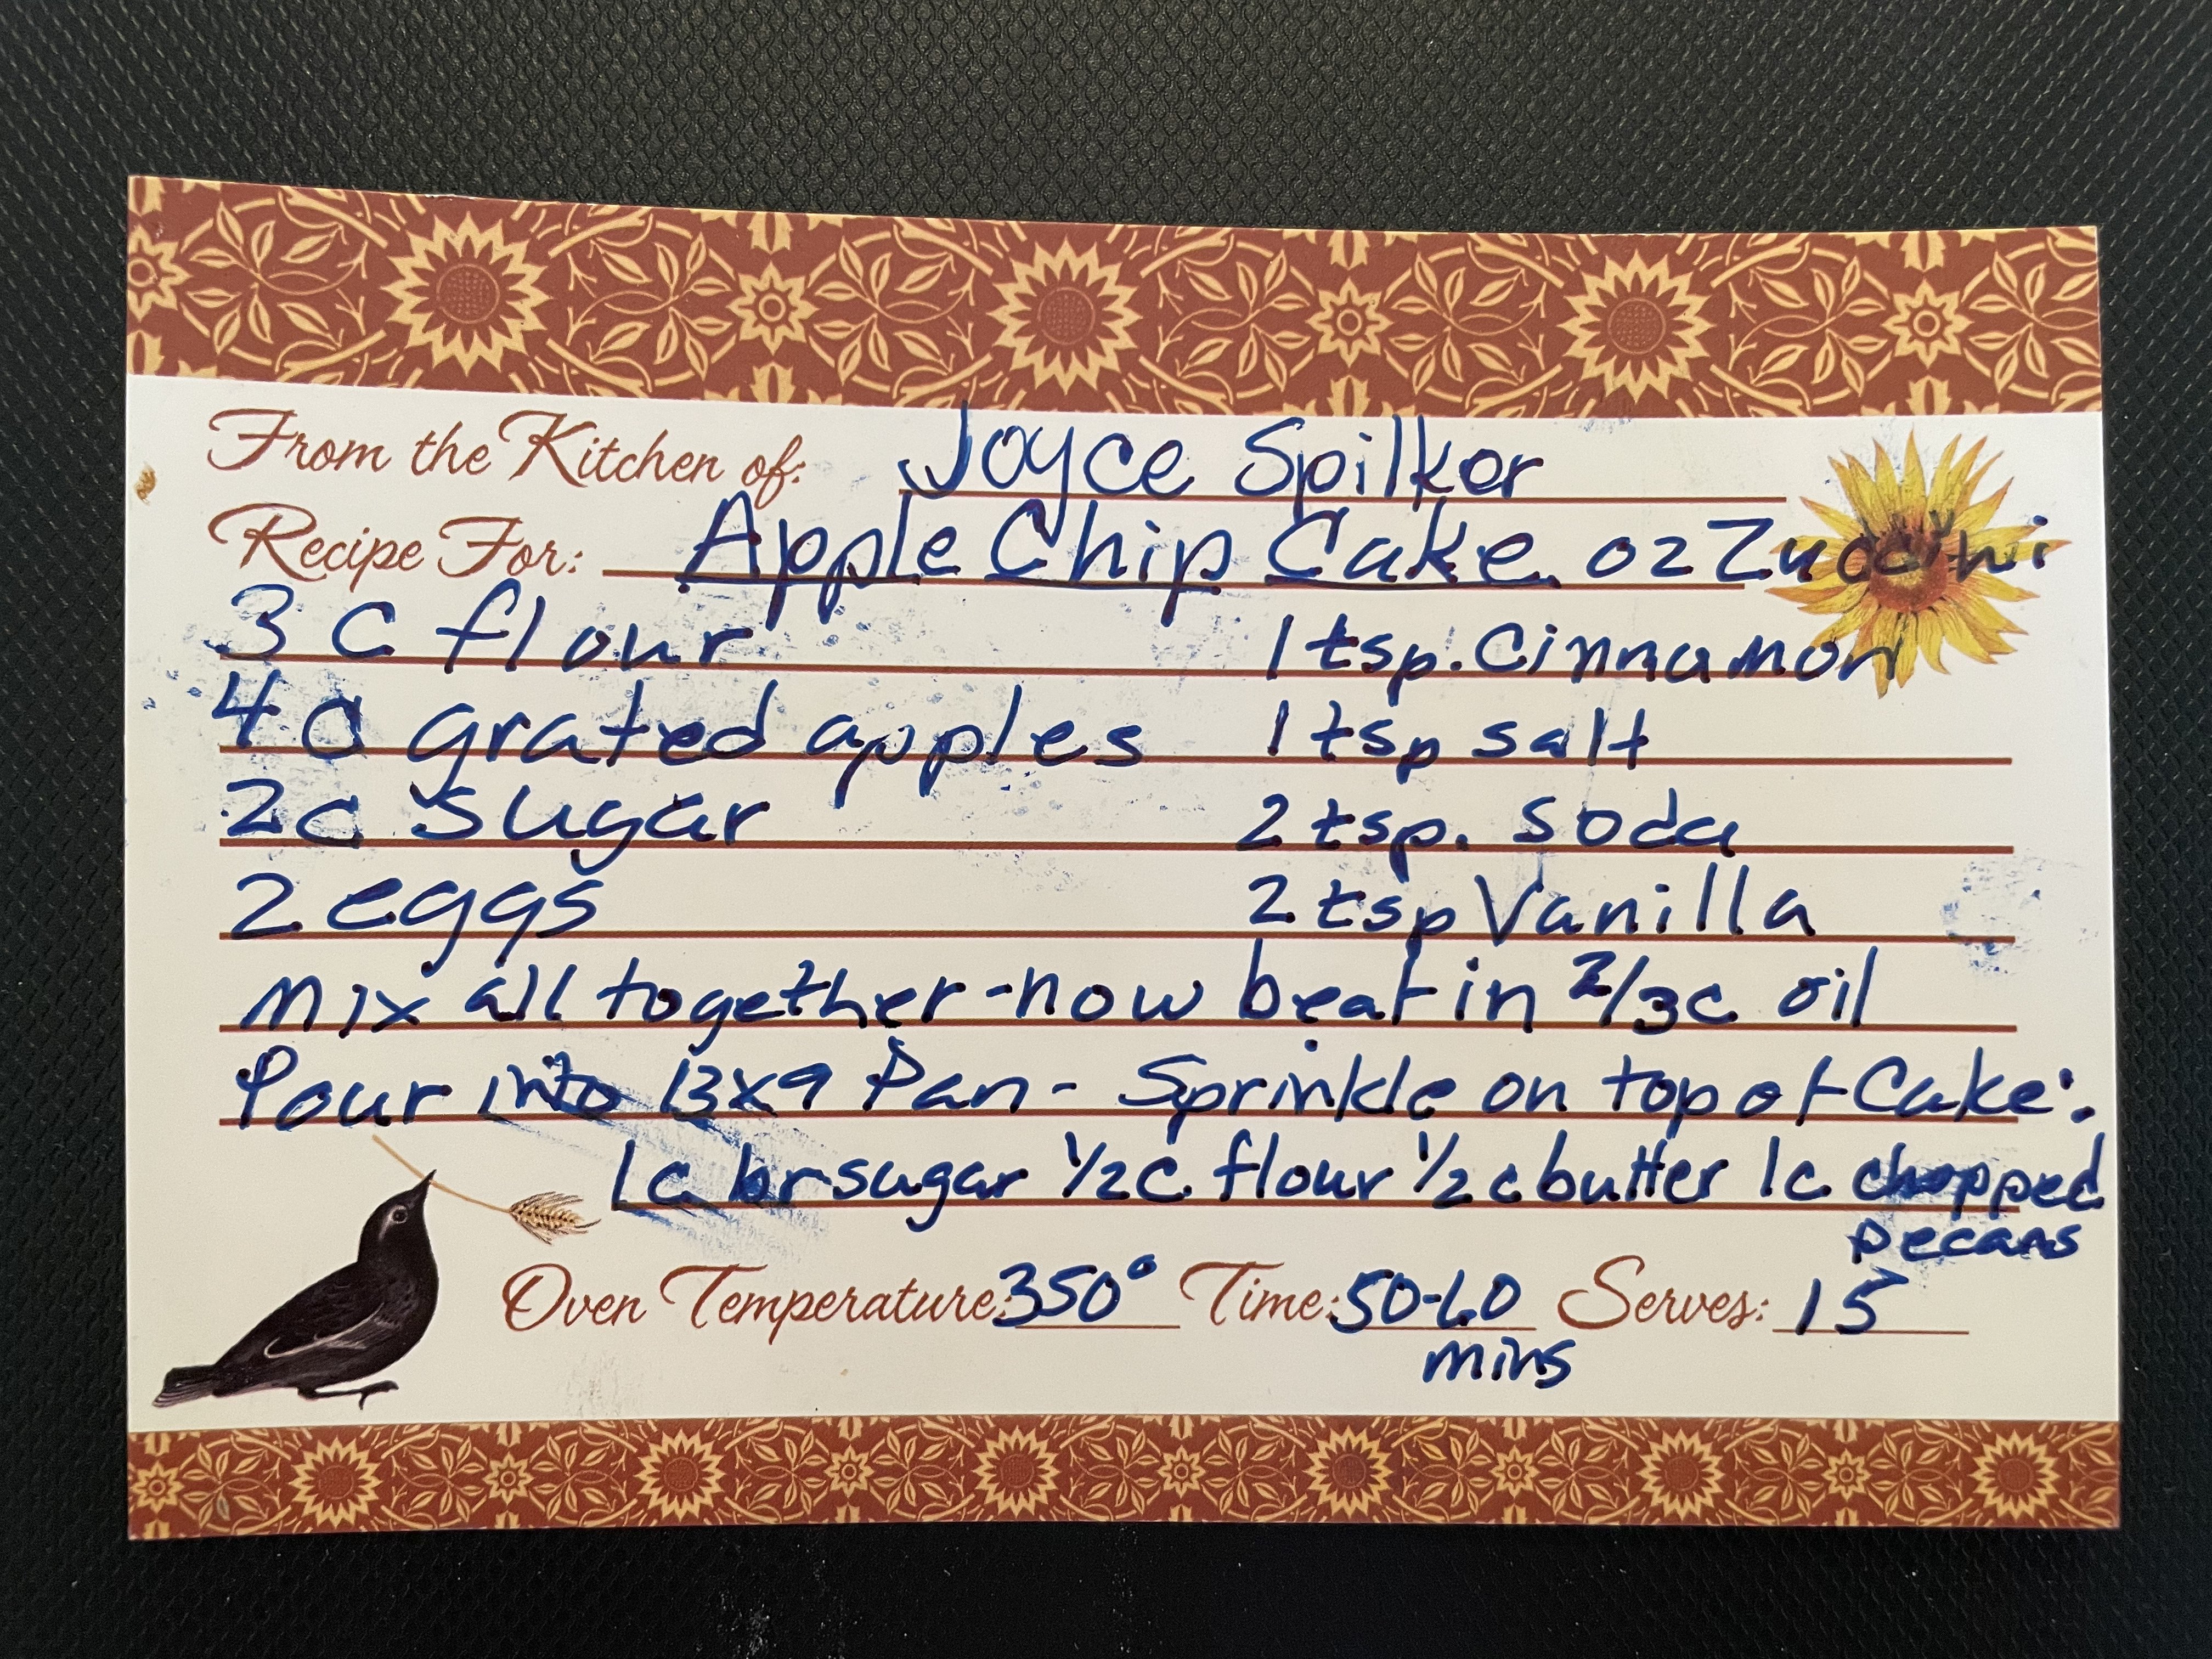 From the Kitchen of: Joyce Spilker
Recipe For: Apple Chip Cake or Zuccini
3 C flour 1 tsp. Cinnamon
4 C grated apples 1 tsp salt
2c sugar 2 tsp. soda
2 eggs 2 tsp Vanilla
Mix all together - now beat in 2/3c oil
Pour into 13x9 Pan - Sprinkle on top of Cake:
1c br sugar 1/2c flour 1/2 c butter 1c chopped
pecans
Oven Temperature: 350° Time: 50-60 Serves: 15
mins